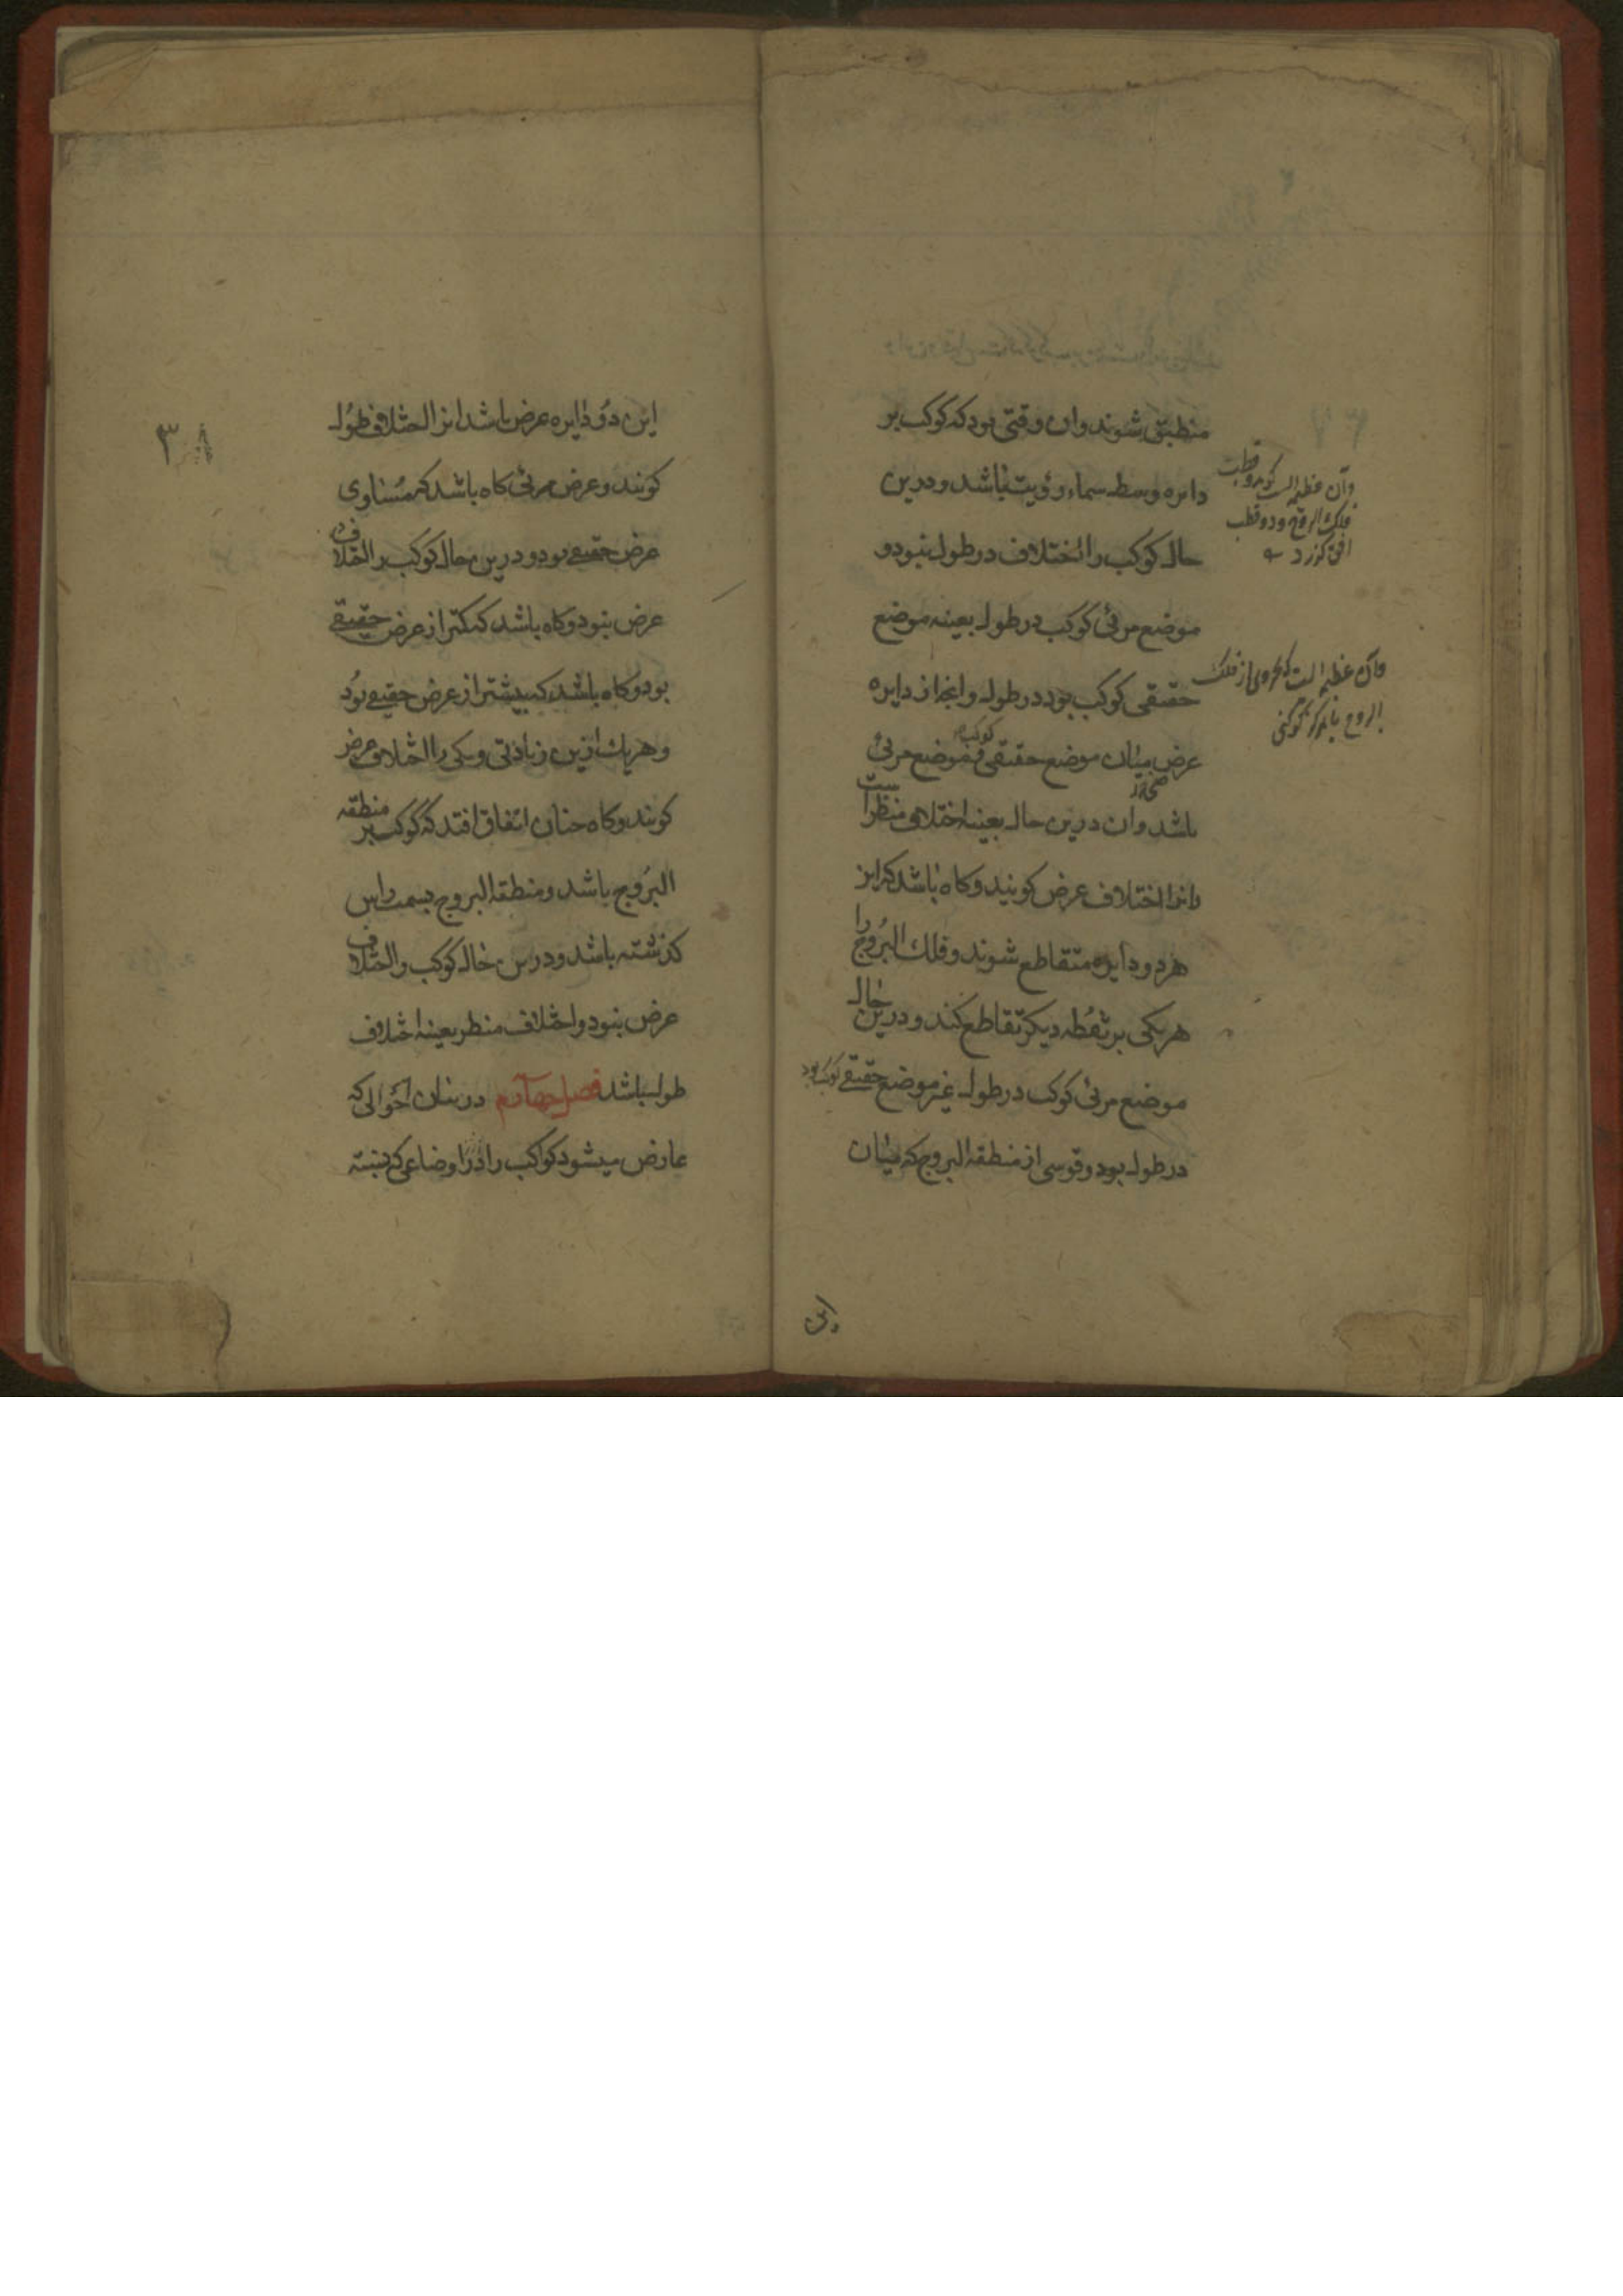 منطبق شوند وان وقتی بود که کوکب بر
دایره وسط سماء رؤیت باشد و درین
حال کوکب را اختلاف در طول نبود و
موضع مرئی کوکب در طول بعینه موضع
حقیقی کوکب بود در طول وانچه از دایره
عرض میان موضع حقیقی کوکب و موضع مرئی
باشد وان درین حال بعینه اختلاف منظر است
انرا اختلاف عرض کویند وکاه باشد که این
هر دو دایره متقاطع شوند وفلک البروج را
هر یکی بر نقطه دیکر تقاطع کند ودرین حال
موضع مرئی کوکب در طول غیر موضع حقیقے کوکب بود
در طول بود وقوسی از منطقة البروج که میان
وآن عظیمه است که بدو قطب
فلک البروج ودو قطب
افق کذرد
وآن عظیمه است که
این
۳۸
این دو دایره عرض باشد انرا اختلاف طول
کویند وعرض مرئی کاه باشد که مساوی
عرض حقیقے بود ودرین حال کوکب را اختلاف
عرض نبود وکاه باشد که کمتر از عرض حقیقے
بود وکاه باشد که بیشتر از عرض حقیقے بود
وهریک ازین زیادتی وکمی را اختلاف عرض
کویند وکاه چنان اتفاق افتد که کوکب بر منطقه
البروج باشد ومنطقة البروج بسمت راس
کذشته باشد ودرین حال کوکب را اختلاف
عرض نبود واختلاف منظر بعینه اختلاف
طول باشد فصل چهاردهم در بیان احوالی که
عارض میشود کواکب را در اوضاعی که نسبت